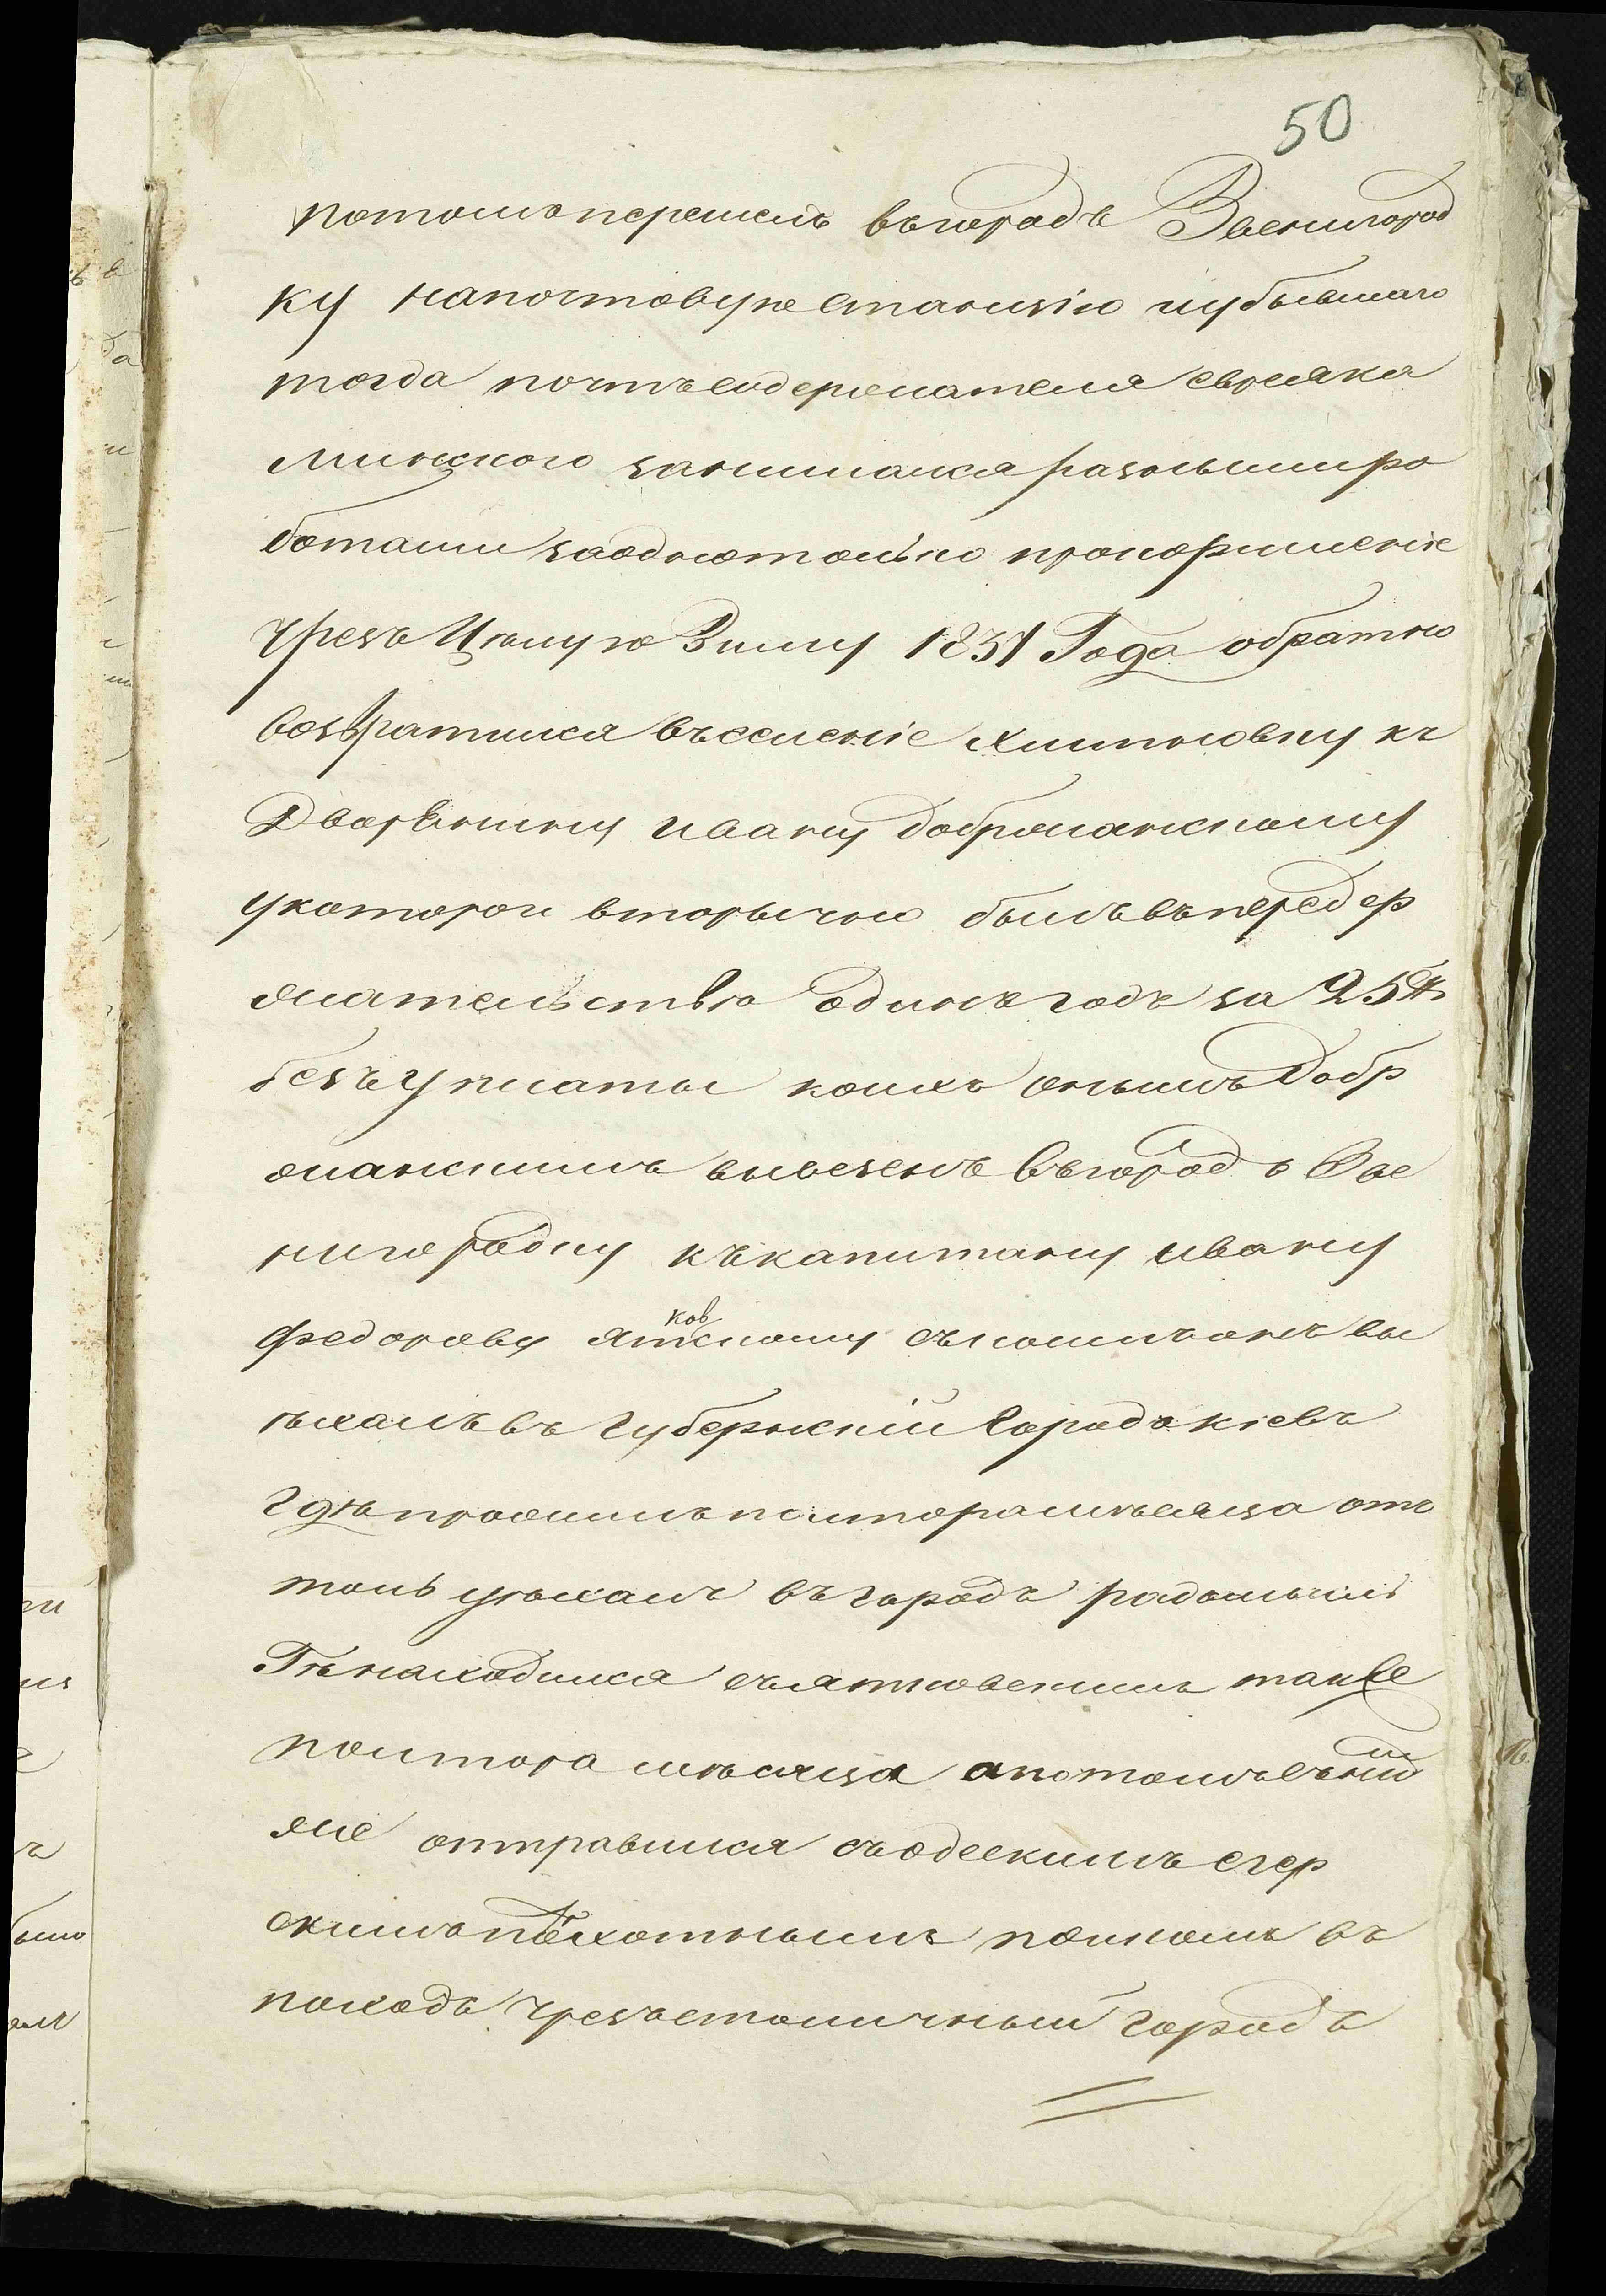 50
потомъ перешелъ въ городъ Звенигород
ку на почтовую станцію и у бывшаго
тогда почтъ содержателя еврея ка
минского занимался разными ра
ботами за одно только прокормленіе
чрезъ Цѣлую Зиму 1831 Года обратно
возвратился въ селеніе Хлипновку къ
Дворянину ивану добржанскому
у которои вторычно былъ въ передер
жательствѣ одинъ годъ за 25
безъ уплаты коихъ онымъ Добр
жанскимъ вывезенъ въ городъ Зве
нигородку къ капитану ивану
федорову ятковскому съ коимъ онъ вы
ѣхалъ въ губернскій городъ кіевъ
гдѣ проживъ полтора мѣсяца отъ
толь уѣхалъ въ городъ радомысль
Гдѣ находился съ ятковскимъ также
полтора мѣсяца а потомъ съ ним
же отправился съ одескимъ егер
скимъ пѣхотнымъ полкомъ въ
походъ чрезъ столичный городъ